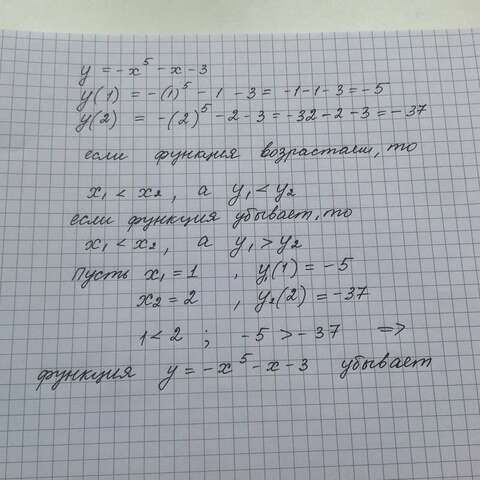 y = -x⁵ - x - 3
y(1) = -(1)⁵ - 1 - 3 = -1-1-3 = -5
y(2) = -(2)⁵ - 2 - 3 = -32-2-3 = -37
если функция возрастает, то
x₁ < x₂, а y₁ < y₂
если функция убывает, то
x₁ < x₂, а y₁ > y₂
Пусть x₁ = 1, y₁(1) = -5
x₂ = 2, y₂(2) = -37
1 < 2 ; -5 > -37 =>
функция y = -x⁵ - x - 3 убывает